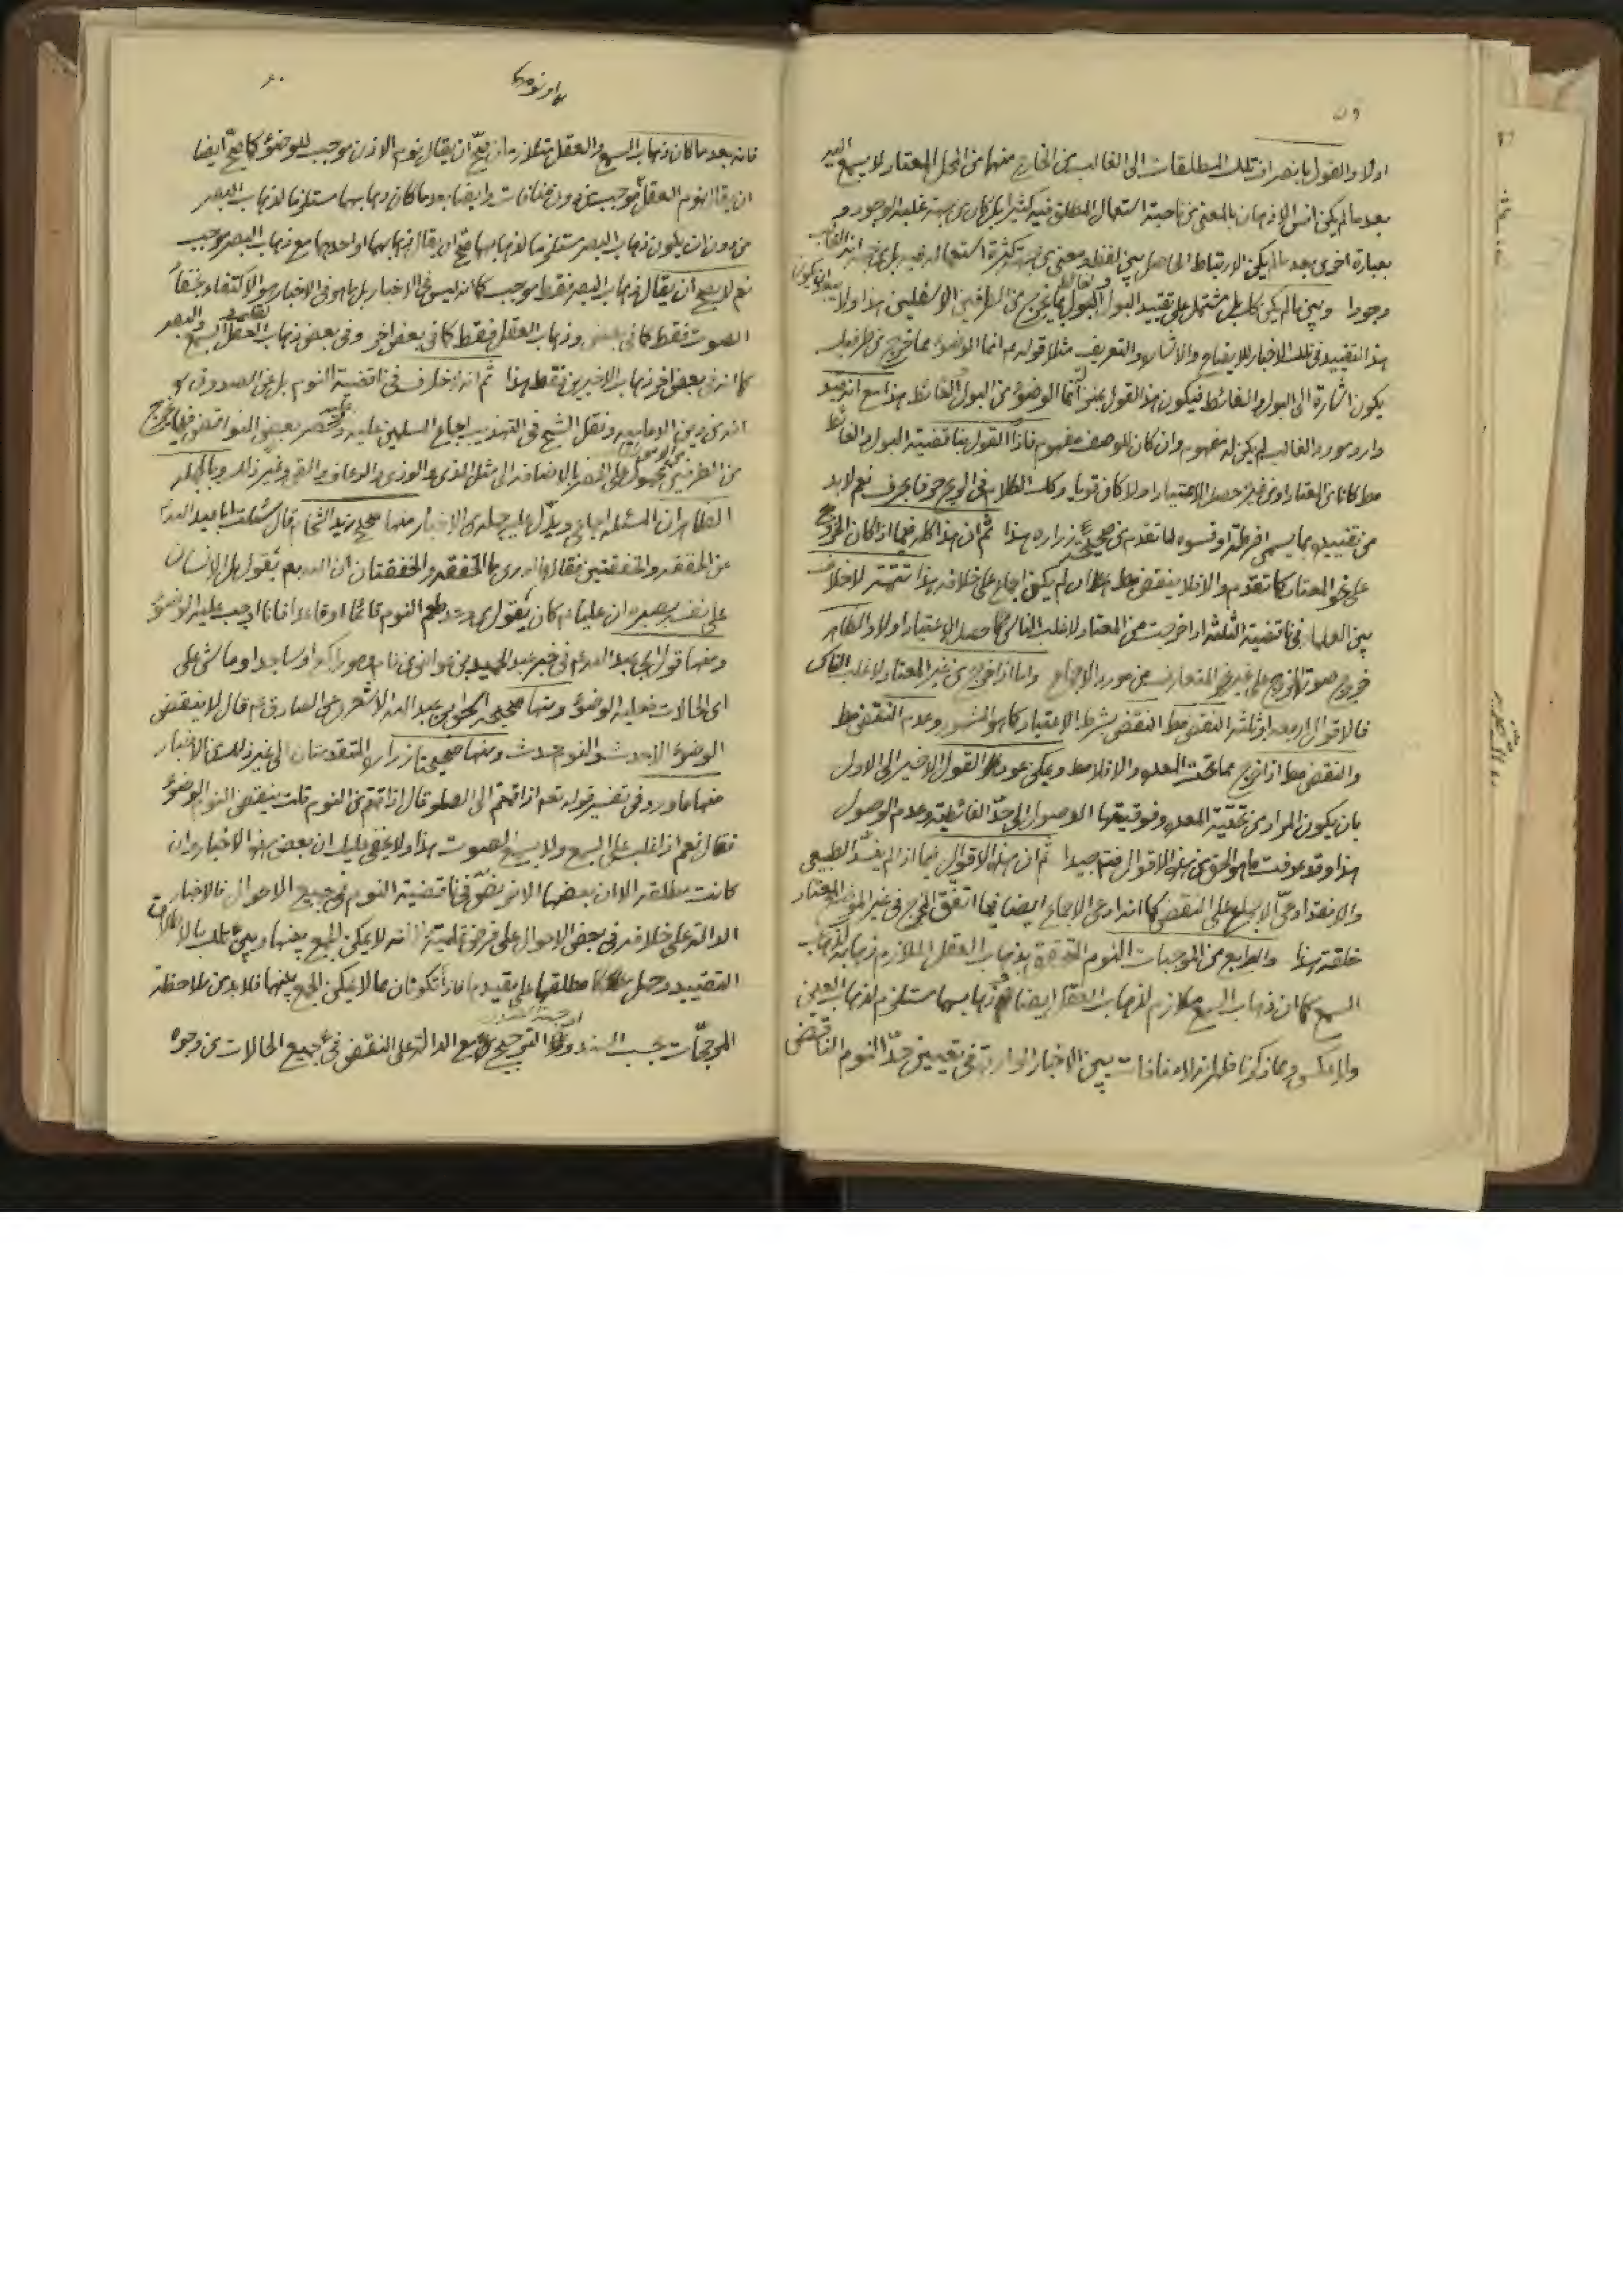 ٥٩
اولا والقول بانصراف تلك المطلقات الى الغالب من الخارج منها من المحل المعتاد لا يسمع
بعد ما لم يكن انس الاذهان بالمعنى من ناحية استعمال المطلق فيه كثيرا بل كان من جهة غلبة الوجود و
بعبارة اخرى بعد ما لم يكن الارتباط الحاصل بين اللفظ ومعنى من جهة كثرة استعماله فيه بل من جهة
وجودا وبين ما لم يكن كل مشتمل على تقييد البول والغائط بما يخرج من الطرفين الاسفلين هذا اولا
هذا التقييد في تلك الاخبار للايضاح والاشارة والتعريف مثلا قوله ع انما الوضوء مما خرج من طرفيك
يكون اشارة الى البول والغائط فيكون هذا القول بمنزلة انما الوضوء من البول والغائط هذا مع انه قيد
وارد مورد الغالب لم يكن له مفهوم وان كان للوصف مفهوم فاذا القول بناقضية البول والغائط
مط كانا من المعتاد او من غيره حصل الاعتياد اولا كان قويا وكذلك الكلام في الريح حرفا بحرف نعم لا بد
من تقييده بما يسمى ضرطة او فسوة لما تقدم من صحيحة زرارة هذا ثم ان هذا كله فيما اذا كان الخروج
على نحو المعتاد كما تقدم والا فلا ينقض مط ان لم يكن اجماع على خلافه هذا تتمة لا خلاف
بين العلماء في ناقضية الثلثة اذا خرجت من المعتاد لاغلب الناس حصل الاعتياد اولا والظاهر
خروج صورة الخروج على غير نحو المتعارف من مورد الاجماع واما اذا خرج من غير المعتاد لاغلب الناس
فالاقوال اربعة او ثلثة النقض مط النقض بشرط الاعتياد كما هو المشهور وعدم النقض مط
والنقض مط اذا خرج مما تحت المعدة والا فلا مط ويمكن عود القول الاخير الى الاول
بان يكون المراد من تحتية المعدة وفوقيتها الوصول الى حد الغائطية وعدم الوصول
هذا وقد عرفت ما هو الحق من هذه الاقوال فتنبه جيدا ثم ان هذه الاقوال فيما اذا لم ينسد الطبيعي
والا فقد ادعي الاجماع على النقض كما انه ادعي الاجماع ايضا فيما اتفق المخرج في غير الموضع المعتاد
خلقة هذا والرابع من الموجبات النوم المتحقق بذهاب العقل الملازم ذهابه لذهاب
السمع كما ان ذهاب السمع ملازم لذهاب العقل ايضا وذهابهما مستلزم لذهاب العين
ولا عكس ومما ذكرنا ظهر انه لا منافات بين الاخبار الواردة في تعيين حد النوم الناقض
٦٠
فانه بعد ما كان ذهاب السمع والعقل متلازمان صح ان يقال نوم الاذن موجب للوضوء كما صح ايضا
ان يقال نوم العقل موجب من دون منافات وايضا بعد ما كان ذهابهما مستلزما لذهاب البصر
من دون ان يكون ذهاب البصر مستلزما لذهابهما صح ان يقال ذهابهما او احدهما مع ذهاب البصر موجب
نعم لا يصح ان يقال ذهاب البصر فقط موجب كما انه ليس في الاخبار بل ما هو في الاخبار هو الاكتفاء بخفاء
الصوت فقط كما في بعض وذهاب العقل فقط كما في بعض اخر وفي بعض ذهاب العقل والسمع والبصر
كما انه في بعض اخر ذهاب الاخيرين فقط هذا ثم انه لا خلاف في ناقضية النوم بل عن الصدوق
انه من دين الامامية ونقل الشيخ في التهذيب اجماع المسلمين عليه وحصر بعض النواقض فيما يخرج
من الطرفين محمول على الحصر بالاضافة الى مثل المذي والوذي والرعاف والقي وغير ذلك وبالجملة
الظاهر ان المسئلة اجماعي ويدل عليه جملة من الاخبار منها صحيح زيد الشحام قال سئلت ابا عبد الله ع
عن الخفقة والخفقتين فقال ما ادري ما الخفقة والخفقتان ان الله يقول بل الانسان
على نفسه بصيرة ان عليا ع كان يقول من وجد طعم النوم قائما او قاعدا فانما اوجب عليه الوضوء
ومنها قول ابي عبد الله ع في خبر عبد الحميد بن عواض من نام وهو راكع او ساجد او ماش على
اي الحالات فعليه الوضوء ومنها صحيح اسحق بن عبد الله الاشعري عن الصادق ع قال لا ينقض
الوضوء الا حدث والنوم حدث ومنها صحيحتا زرارة المتقدمتان الى غير ذلك من الاخبار
منها ما ورد في تفسير قوله تعم اذا قمتم الى الصلوة قال اذا قمتم من النوم قلت ينقض النوم الوضوء
فقال نعم اذا غلب على السمع ولا يسمع الصوت هذا ولا يخفى عليك ان بعض هذه الاخبار وان
كانت مطلقة الا ان بعضها الاخر نص في ناقضية النوم في جميع الاحوال فالاخبار
الدالة على خلافه في بعض الاحوال على فرض تمامية لا يمكن الجمع بينها وبين تلك بالاطلاق
التقييد وحمل مطلقها على مقيدها فاذا تكونان مما لا يمكن الجمع بينها فلا بد من ملاحظة
المرجحات بحسب السند او جهة الصدور والترجيح مع الدالة على النقض في جميع الحالات من وجوه